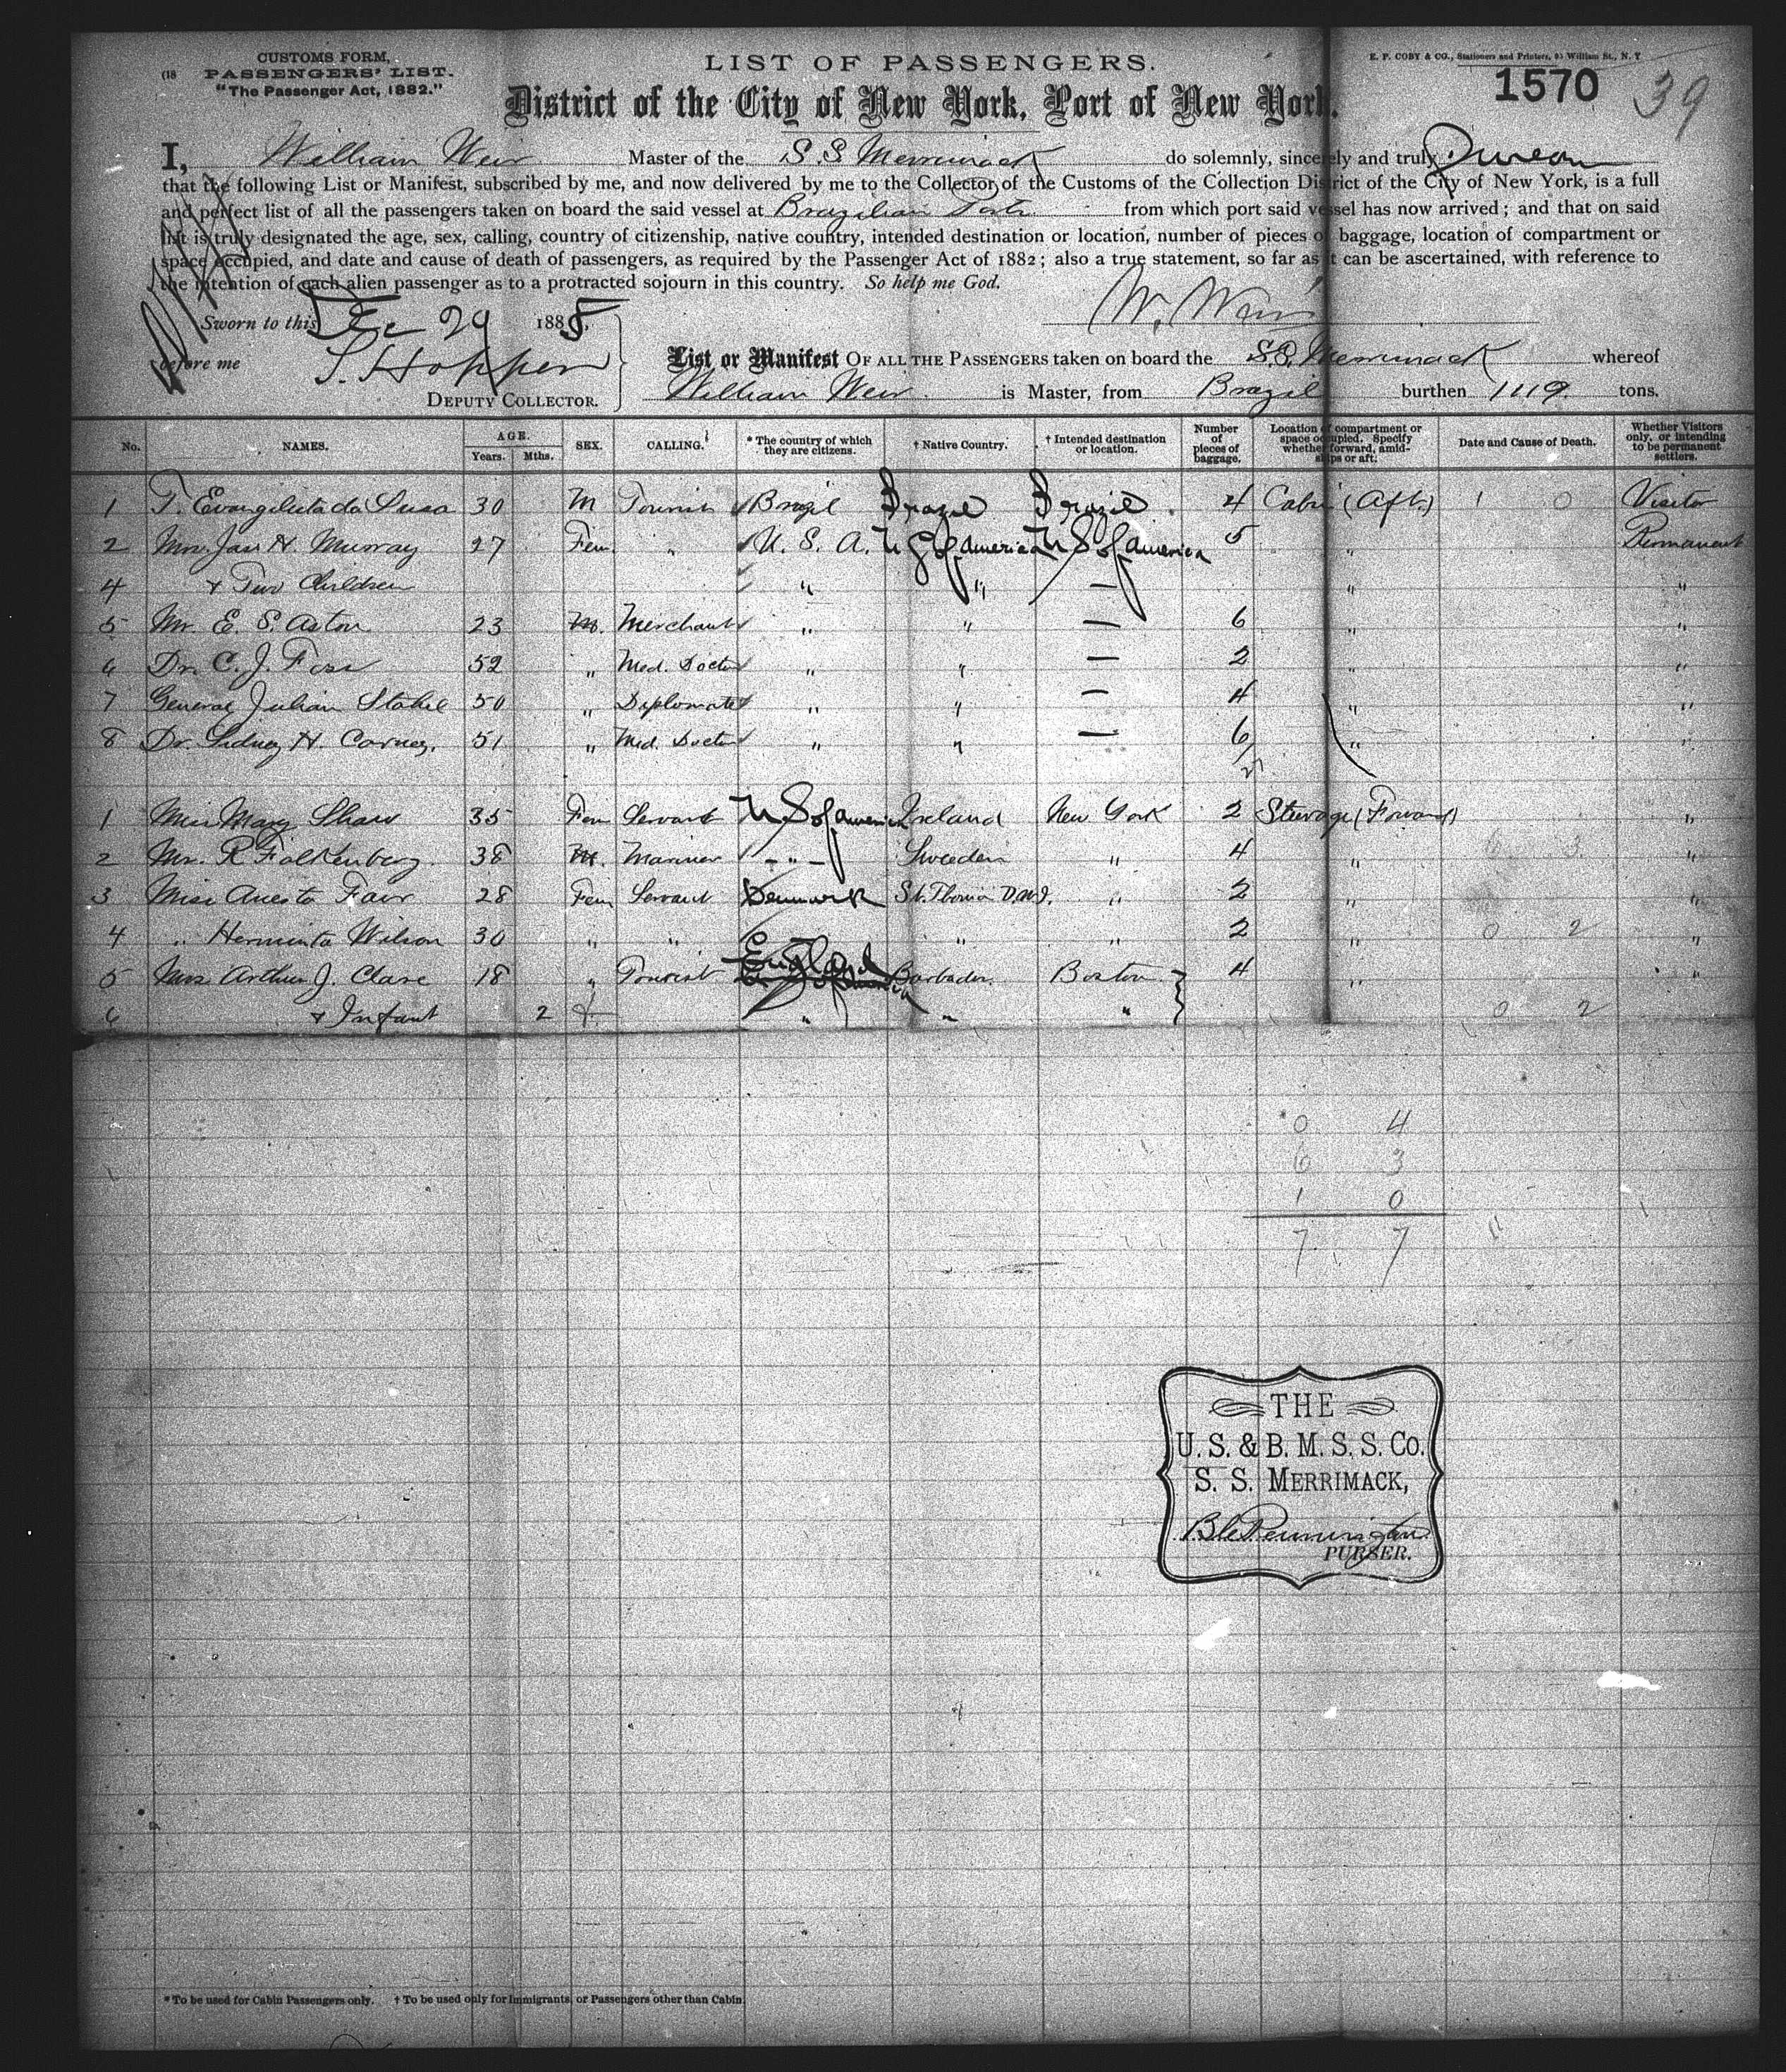 CUSTOMS FORM,
(18 PASSENGERS' LIST.
"The Passenger Act, 1882."
LIST OF PASSENGERS.
E. P. COBY & CO., Stationers and Printers, 95 William St., N. Y
1570 39
District of the City of New York, Port of New York.
I, William Weir Master of the S.S Merrimack do solemnly, sincerely and truly swear
that the following List or Manifest, subscribed by me, and now delivered by me to the Collector of the Customs of the Collection District of the City of New York, is a full
and perfect list of all the passengers taken on board the said vessel at Brazilian Ports from which port said vessel has now arrived; and that on said
list is truly designated the age, sex, calling, country of citizenship, native country, intended destination or location, number of pieces of baggage, location of compartment or
space occupied, and date and cause of death of passengers, as required by the Passenger Act of 1882; also a true statement, so far as it can be ascertained, with reference to
the intention of each alien passenger as to a protracted sojourn in this country. So help me God.
W. Weir
Sworn to this Dec 29 1885
before me S. Hopper
DEPUTY COLLECTOR.
List or Manifest OF ALL THE PASSENGERS taken on board the S.S. Merrimack whereof
William Weir is Master, from Brazil burthen 1119 tons.
No. NAMES. AGE. Years. Mths. SEX. CALLING. * The country of which they are citizens. † Native Country. † Intended destination or location. Number of pieces of baggage. Location of compartment or space occupied. Specify whether forward, amidships or aft. Date and Cause of Death. Whether Visitors only, or intending to be permanent settlers.
1 30 M Tourist Brazil Brazil Brazil 4 Cabin (Aft.) 1 0 Visitor
2 Mrs. Jas H. Murray 27 Fem. " U. S. A. U S of America U S of America 5 " Permanent
4 & Two Children " " — " "
5 Mr. E. S. Aston 23 M. Merchant " " — 6 " "
6 Dr. C. J. 52 " Med. Doctor " " — 2 " "
7 General Julian Stahel 50 " Diplomate " " — 4 " "
8 Dr. Sidney H. Carney. 51 " Med. Doctor " " — 6 " "
27
1 Miss Mary Shaw 35 Fem Servant U S of America Ireland New York 2 Steerage (Forward) "
2 Mr. R Falkenberg. 38 M. Mariner - " - Sweeden " 4 " 6 3 "
3 Miss 28 Fem Servant Denmark St. Thomas D.W.I. " 2 " "
4 " Herminta Wilson 30 " " " " 2 " 0 2 "
5 Mrs Arthur J. Clare 18 " Tourist England Barbados Boston 4 " "
6 & Infant 2 f " " " 0 2
0 4
6 3
1 0
7 7
THE
U. S. & B. M. S. S. Co.
S. S. MERRIMACK,
Pennington
PURSER.
* To be used for Cabin Passengers only. † To be used only for Immigrants, or Passengers other than Cabin